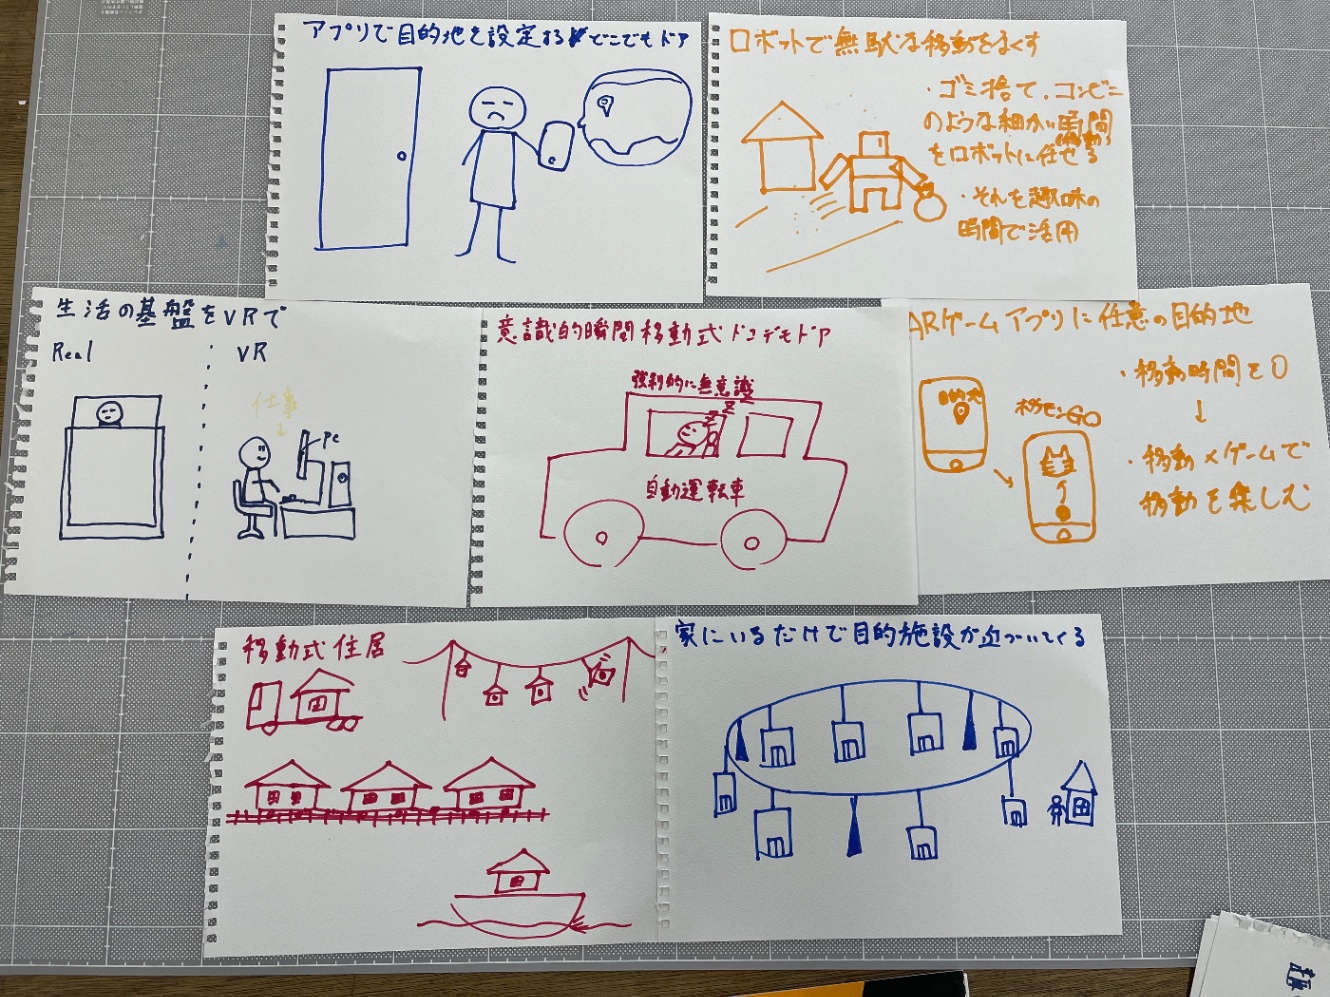 アプリで目的地を設定するどこでもドア
ロボットで無駄な移動をなくす
・ゴミ捨て、コンビニ
のような細かい時間
(移動)
をロボットに任せる
・それを趣味の
時間で活用
生活の基盤をVRで
Real
VR
仕事
PC
意識的瞬間移動式ドコデモドア
強制的に無意識
z z z
自動運転車
ARゲームアプリに任意の目的地
目的地
ポケモンGO
・移動時間を0
↓
・移動×ゲームで
移動を楽しむ
移動式住居
家にいるだけで目的施設が近づいてくる